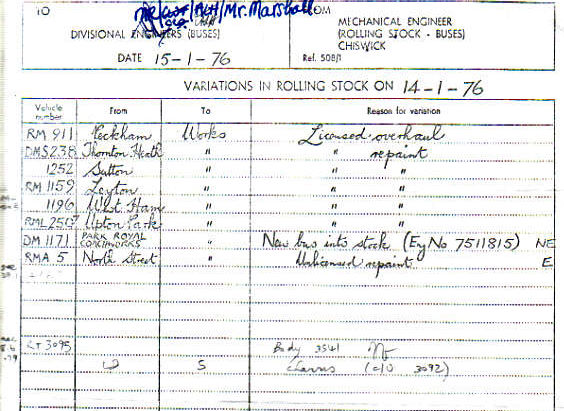 TO
Mr. Marshall
FROM
DIVISIONAL ENGINEERS (BUSES)
MECHANICAL ENGINEER
(ROLLING STOCK - BUSES)
CHISWICK
DATE 15-1-76
Ref. 508/1
VARIATIONS IN ROLLING STOCK ON 14-1-76
Vehicle number From To Reason for variation
RM 911 Peckham Works Licensed overhaul
DMS 238 Thornton Heath " " repaint
1252 Sutton " " "
RM 1159 Leyton " " "
1196 West Ham " " "
RML 2507 Upton Park " " "
DM 1171 PARK ROYAL COACHWORKS " New bus into stock (Eng No 7511815) NE
RMA 5 North Street " Unlicensed repaint E
RT 3095 Body 3541 No
S Chassis (c/o 3092)